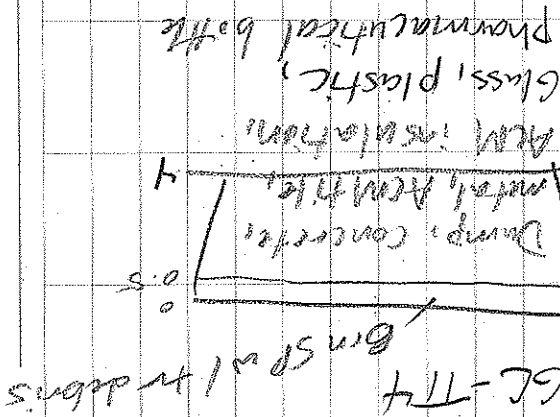 SC-TT4
Brn SP w/ tr debris
0
0.5
Damp, concrete,
metal, ACM tile,
4
ACM insulation,
Glass, plastic,
pharmaceutical bottle